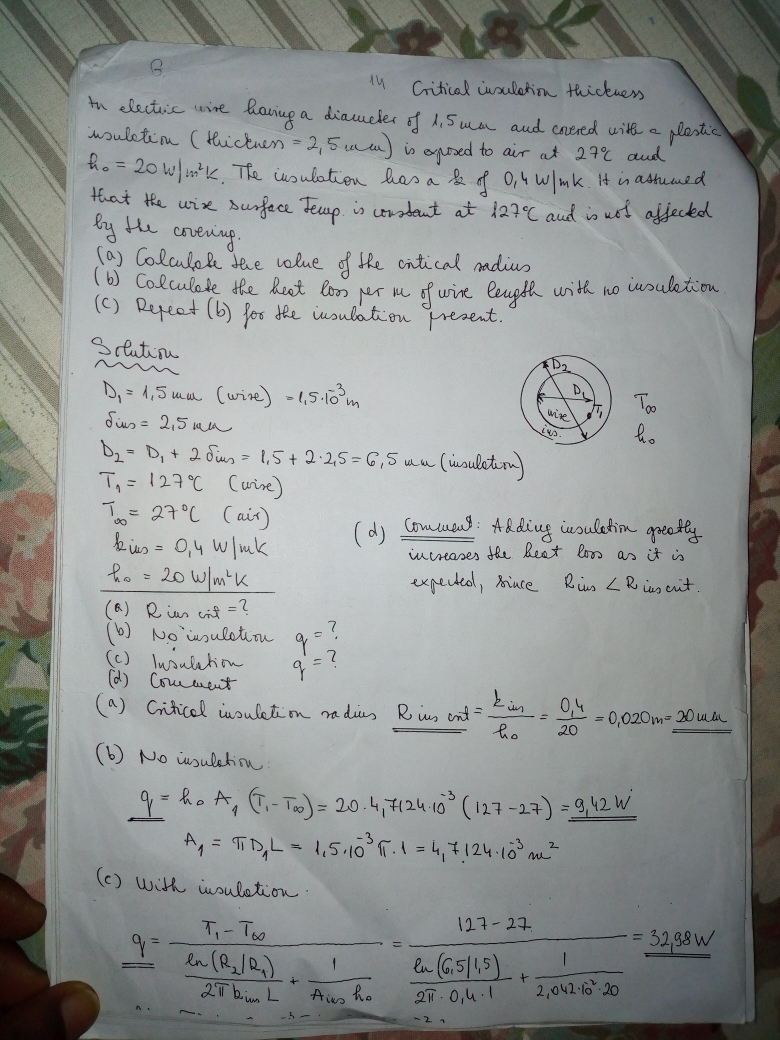 14
Critical insulation thickness
An electric wire having a diameter of 1,5 mm and covered with a plastic
insulation (thickness = 2,5 mm) is exposed to air at 27°C and
h₀ = 20 W/m²K. The insulation has a k of 0,4 W/mK. It is assumed
that the wire surface Temp. is constant at 127°C and is not affected
by the covering.
(a) Calculate the value of the critical radius
(b) Calculate the heat loss per m of wire length with no insulation
(c) Repeat (b) for the insulation present.
Solution
D₁ = 1,5 mm (wire) = 1,5·10⁻³ m
δins = 2,5 mm
D₂ = D₁ + 2 δins = 1,5 + 2·2,5 = 6,5 mm (insulation)
T₁ = 127°C (wire)
T∞ = 27°C (air)
kins = 0,4 W/mK
h₀ = 20 W/m²K
D₂
D₁
T₁
wire
ins.
T∞
h₀
(d) Comment: Adding insulation greatly
increases the heat loss as it is
expected, since Rins < Rins crit.
(a) Rins crit = ?
(b) No insulation q = ?
(c) Insulation q = ?
(d) Comment
(a) Critical insulation radius Rins crit = kins/h₀ = 0,4/20 = 0,020 m = 20 mm
(b) No insulation:
q = h₀ A₁ (T₁ - T∞) = 20·4,7124·10⁻³ (127-27) = 9,42 W
A₁ = πD₁L = 1,5·10⁻³ π·1 = 4,7124·10⁻³ m²
(c) With insulation:
q = (T₁ - T∞) / (ln(R₂/R₁)/(2π kins L) + 1/(Ains h₀)) = (127-27) / (ln(6,5/1,5)/(2π·0,4·1) + 1/(2,042·10⁻²·20)) = 32,98 W